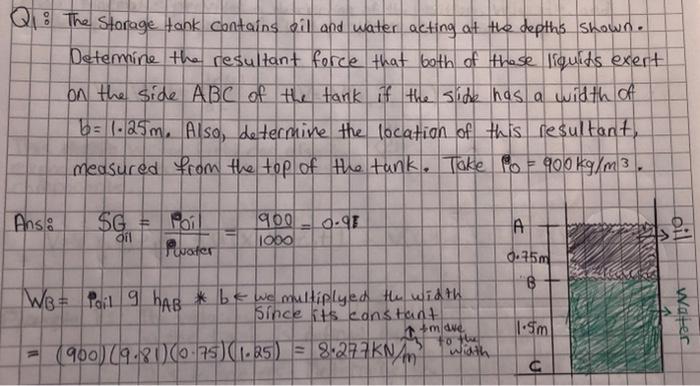 Q1: The storage tank contains oil and water acting at the depths shown.
Determine the resultant force that both of these liquids exert
on the side ABC of the tank if the side has a width of
b= 1.25m. Also, determine the location of this resultant,
measured from the top of the tank. Take ρo = 900 kg/m3.
Ans: SG oil = ρoil / ρwater = 900 / 1000 = 0.9
A
0.75m
B
1.5m
C
oil
water
WB = ρoil g hAB * b ← we multiplyed the width
since its constant
= (900)(9.81)(0.75)(1.25) = 8.277KN/m
↑ due to the width